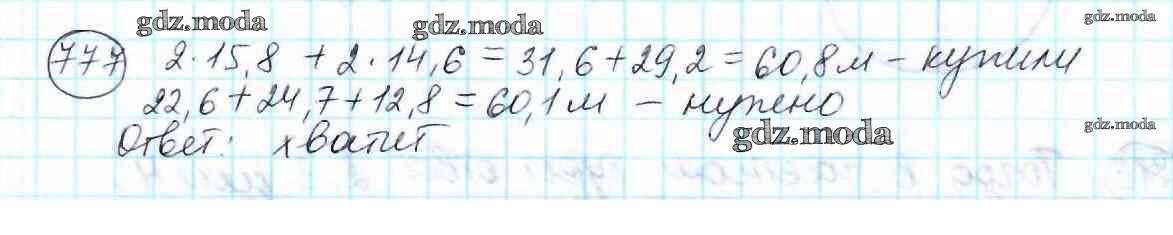 gdz.moda gdz.moda gdz.moda
777 2·15,8 + 2·14,6 = 31,6 + 29,2 = 60,8 м – купили
22,6 + 24,7 + 12,8 = 60,1 м – нужно
gdz.moda gdz.moda
Ответ: хватит